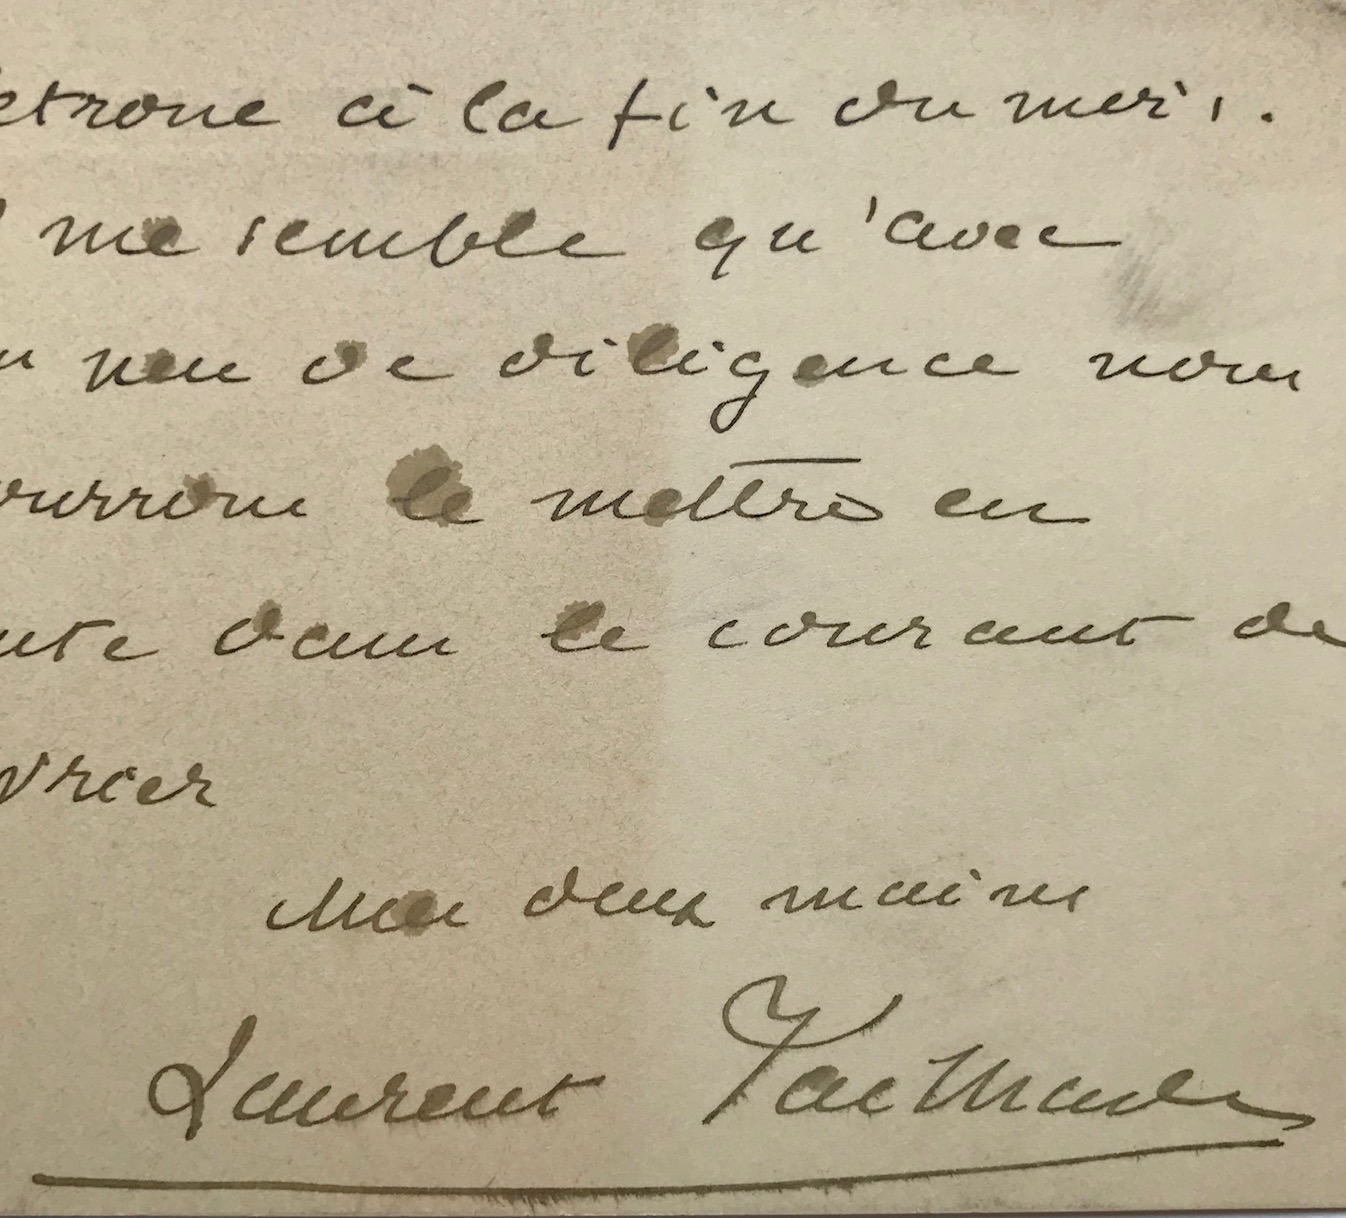 étrone à la fin du mois.
me semble qu'avec
peu de diligence nous
ourrons le mettre en
nte dans le courant de
vrier
Mes deux mains
Laurent Tailhade